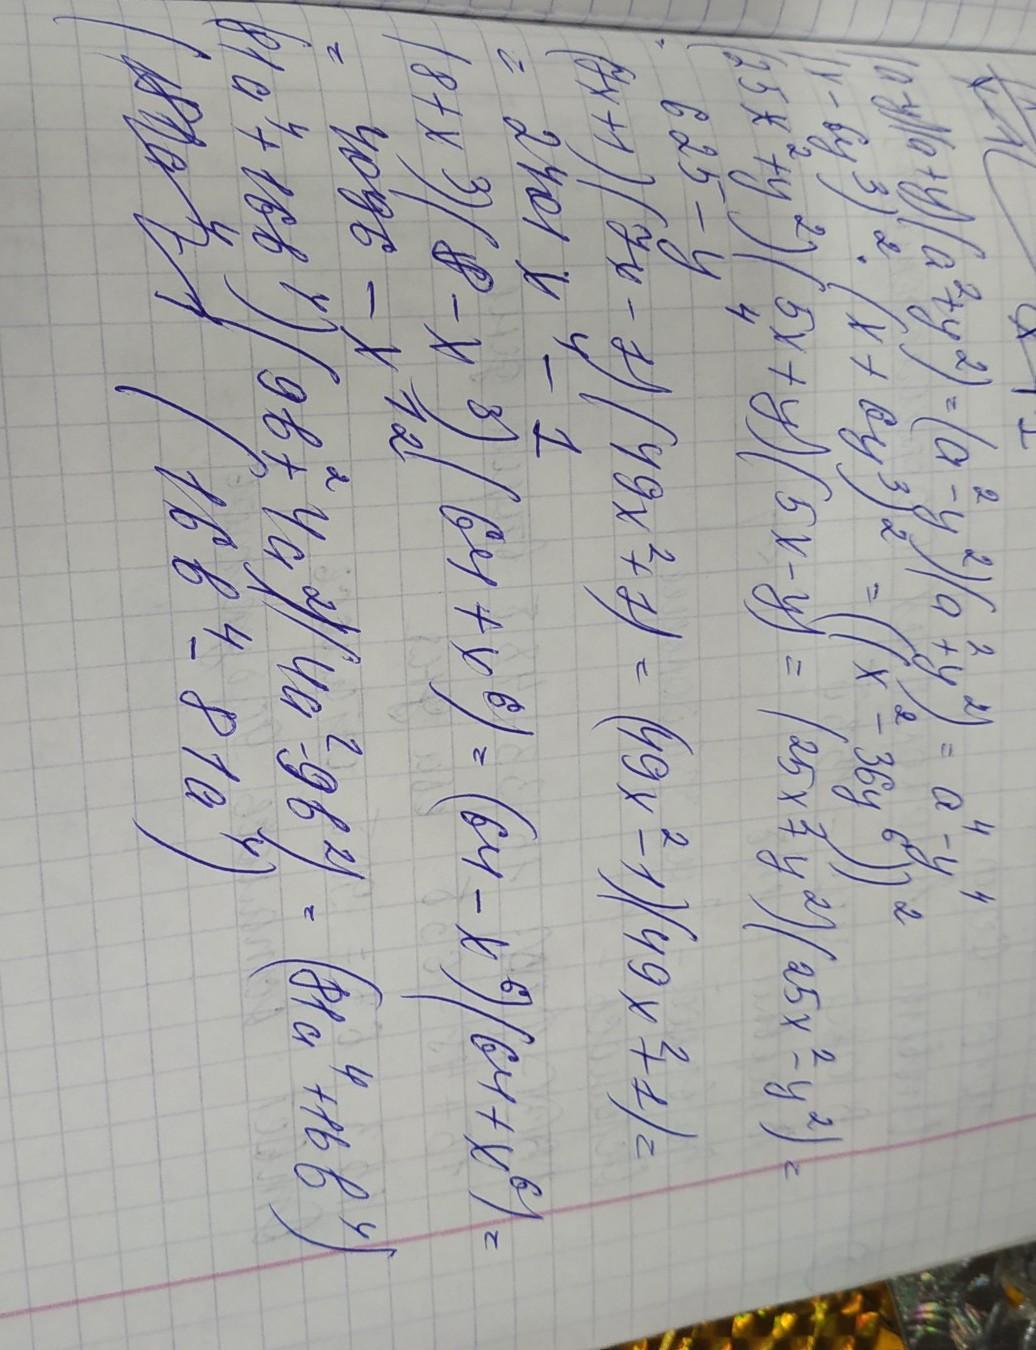 (a-y)(a+y)(a²+y²)=(a²-y²)(a²+y²)=a⁴-y⁴
(x-6y³)²·(x+6y³)²=((x²-36y⁶))²
(25x²+y²)(5x+y)(5x-y)=(25x²+y²)(25x²-y²)=
625-y⁴
(7x+1)(7x-1)(49x²+1)=(49x²-1)(49x²+1)=
=2401x⁴-1
(8+x³)(8-x³)(64+x⁶)=(64-x⁶)(64+x⁶)=
=4096-x¹²
(81a⁴+16b⁴)(9b²+4a²)(4a²-9b²)=(81a⁴+16b⁴)
(16b⁴-81a⁴)